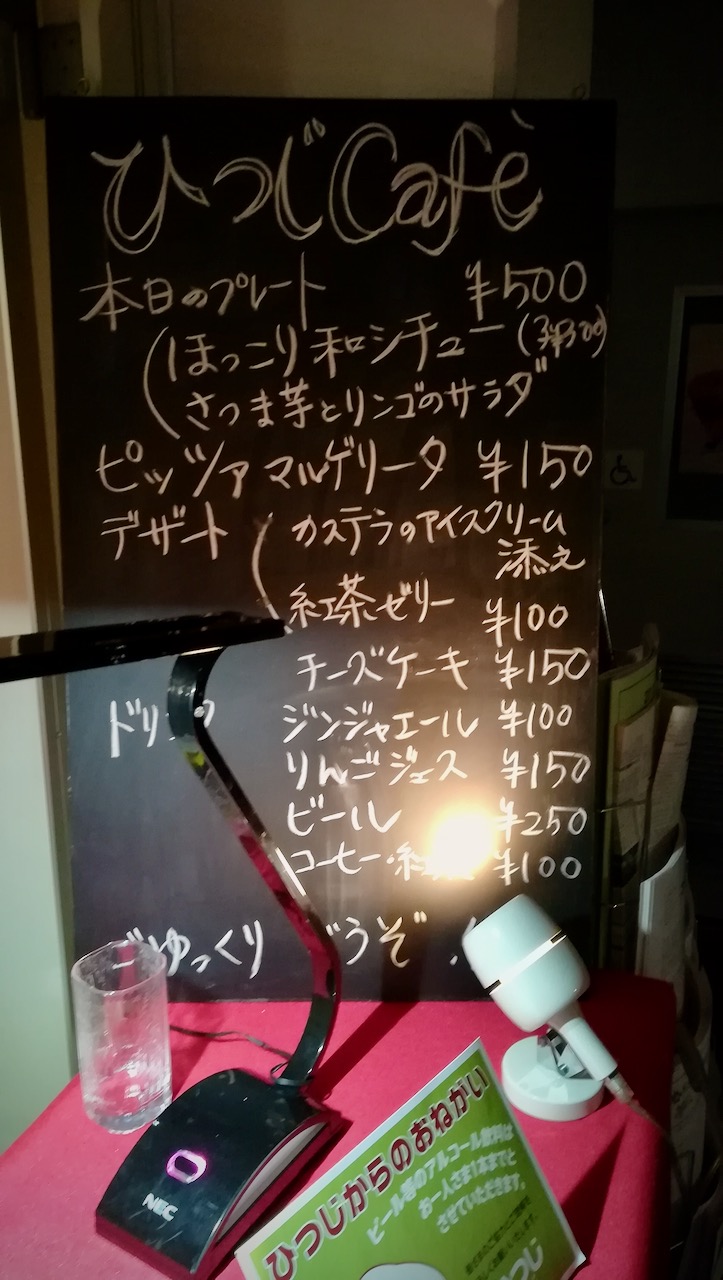 ひつじCafè
本日のプレート ¥500
(ほっこり和シチュー
さつま芋とリンゴのサラダ
ピッツァ マルゲリータ ¥150
デザート カステラのアイスクリーム
添え
紅茶ゼリー ¥100
チーズケーキ ¥150
ジンジャエール ¥100
りんごジュース ¥150
ビール ¥250
コーヒー・ ¥100
ごゆっくり どうぞ
NEC
ひつじからのおねがい
ビール等のアルコール飲料は
お一人さま1本までと
させていただきます。